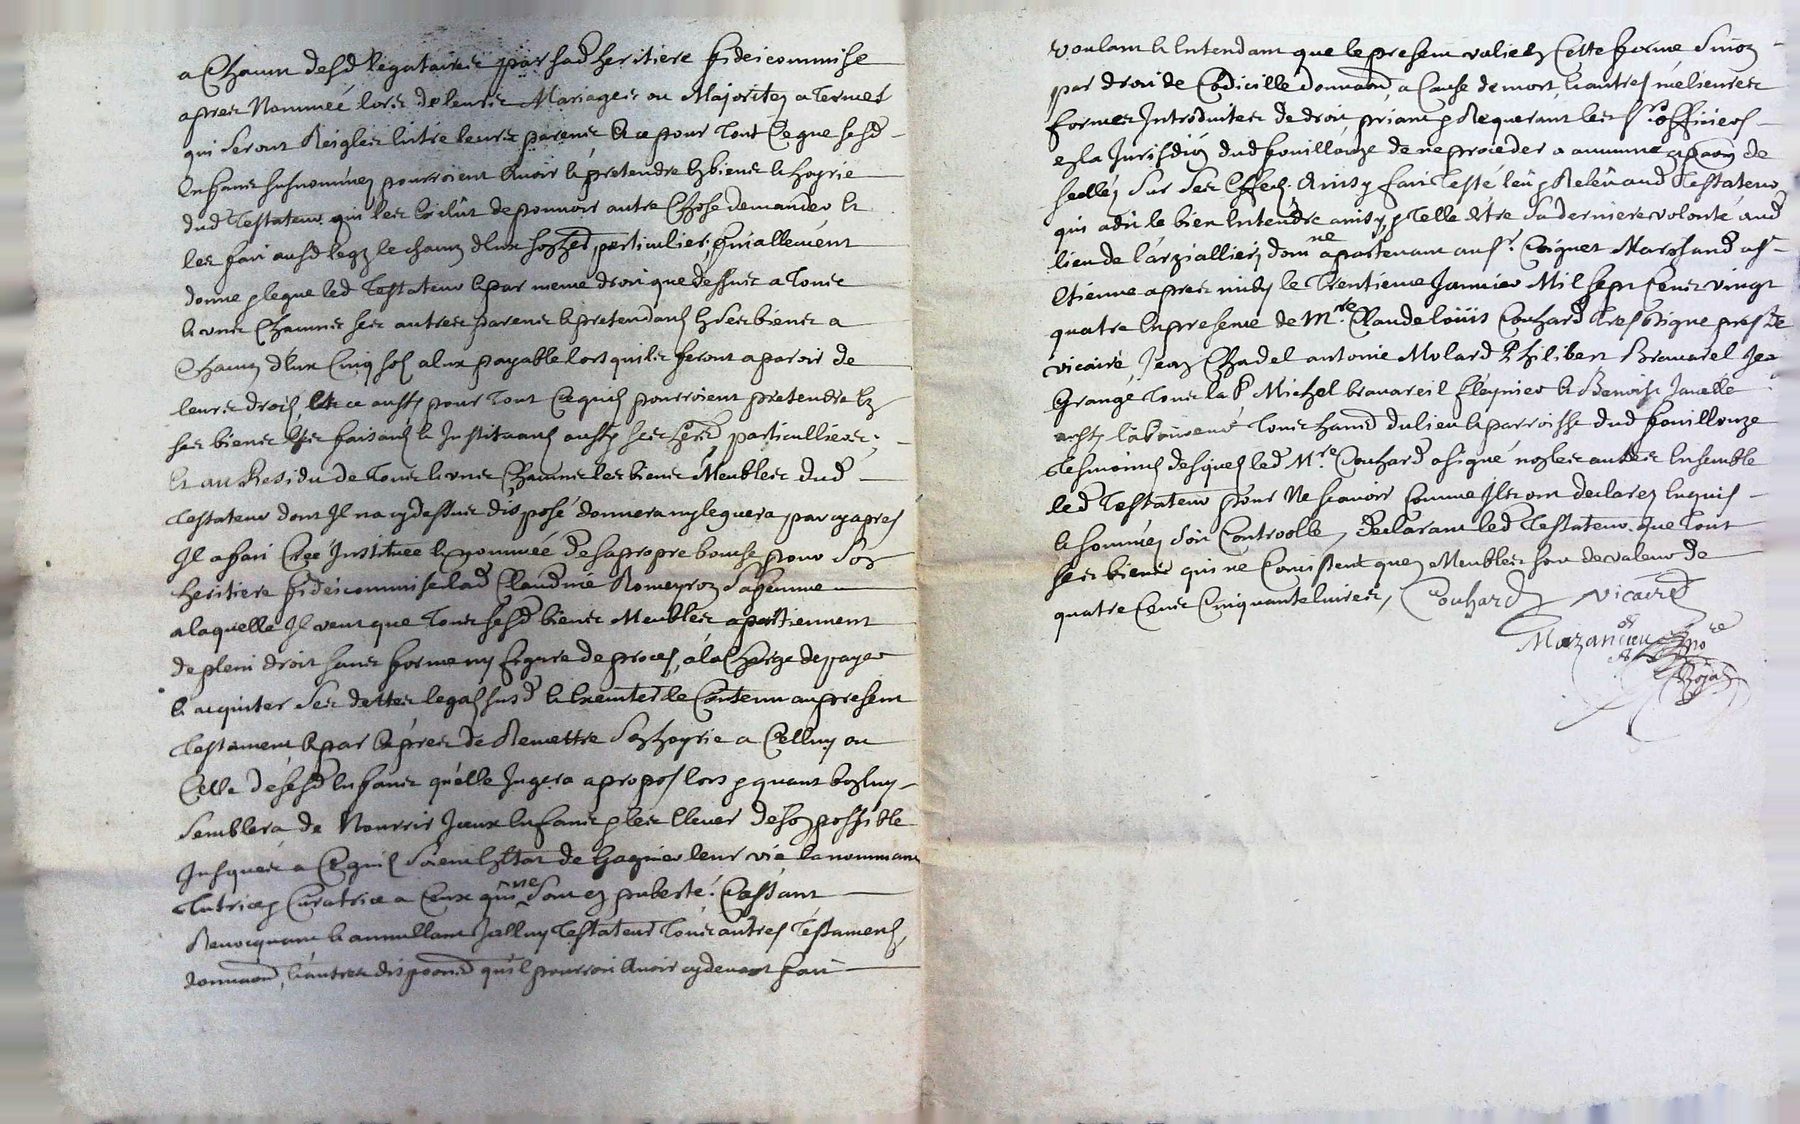 a Chacun desd legataires par sad heritiere fideicommise
apres Nommeé lors de leurs Mariages ou Majoritez a termes
qui seront Reiglez entre leurs parens & ce pour tout ce que sesd
Enfans susnommez pourroient avoir & pretendre Ez biens & hoyrie
dud Testateur qui les Exclût de pouvoir autre Chose demander &
les fait ausd legz le chacun d'Eux ses hers particuliers, Eguallement
donne & legue led Testateur & par meme droit que dessus a tous
& uns Chacuns ses autres parens & pretendans Ez ses biens a
Chacun d'Eux Cinq sols a Eux payable lors quils feront aparoir de
leurs droits, Et ce aussy pour tout Ce quils pourroient pretendre Ez
ses biens Les faisant & Instituant aussy ses hers particulliers;
Et au Residu de tous & uns Chacuns les biens Meubles dud
Testateur dont Il n'a cy dessus disposé donnera ny leguera par cy apres
Il a fait Creé Instituee & nommeé de sa propre bouche pour son
heritiere fideicommise lad Claudine Romeyron sa femme
a laquelle Il veut que tous sesd biens Meubles apartiennent
de plein droit sans forme ny figure de proces, á la Charge de payer
& aquiter ses dettes legats susd & Executer le Contenu au present
Testament & par Expres de Remettre son hoyrie a Celluy ou
Celle de sesd Enfans quélle Jugera a propos lors & quant bon luy
semblera de Nourrir Jceux Enfans & les Elever de son possible
Jusques a Ce quils soient En Etat de Gagner leur vie la nommant
Tutrice & Curatrice a Ceux qui ne sont en puberté. Cassant
Revocquant & annullant Jcelluy Testateur tous autres Testamens,
donnaons, & autres dispoons qu'il pourroit avoir cy devant fait
voulant & Entendant que le present valie En Cette forme sinon
par droit de Codicille donnaon, a Cause de mort, & autres mélieures
formes Introduites de droit priant & Requerant les srs officiers
en la Jurisdion dud fouillouze de ne proceder a aucune apaon de
sellez sur ses Effects. Ainsy fait Testé leu & Releu aud Testateur
qui a dit le bien Entendre ainsy & telle être sa derniere volonté aud
lieu de l'arzialliery domne apartenant au sr. Coignet Marchand a st
Etienne apres midy le trentieme Janvier Mil sept Cens vingt
quatre En presence de Mre. Claude loüis Couhard tres digne prestre
vicaire Jean Chadel antoine Molard Philibert Bravarel Jean
Grangé tous la P Michel bravareil Eleymieu & Benoist Javelle
aussy laboureurs tous hants du lieu & parroisse dud fouillouze
Tesmoints desquels led Mre. Couhard a signé non les autres Ensemble
led Testateur pour Ne scavoir Comme Ils ont declarez Enquis
& sommez soit Controolle, Declarant led Testateur que tout
ses biens qui ne Consistent quen Meubles sont de valeur de
quatre Cens Cinquante livres, Couhard vicaire
Mazancieu nore
Royal